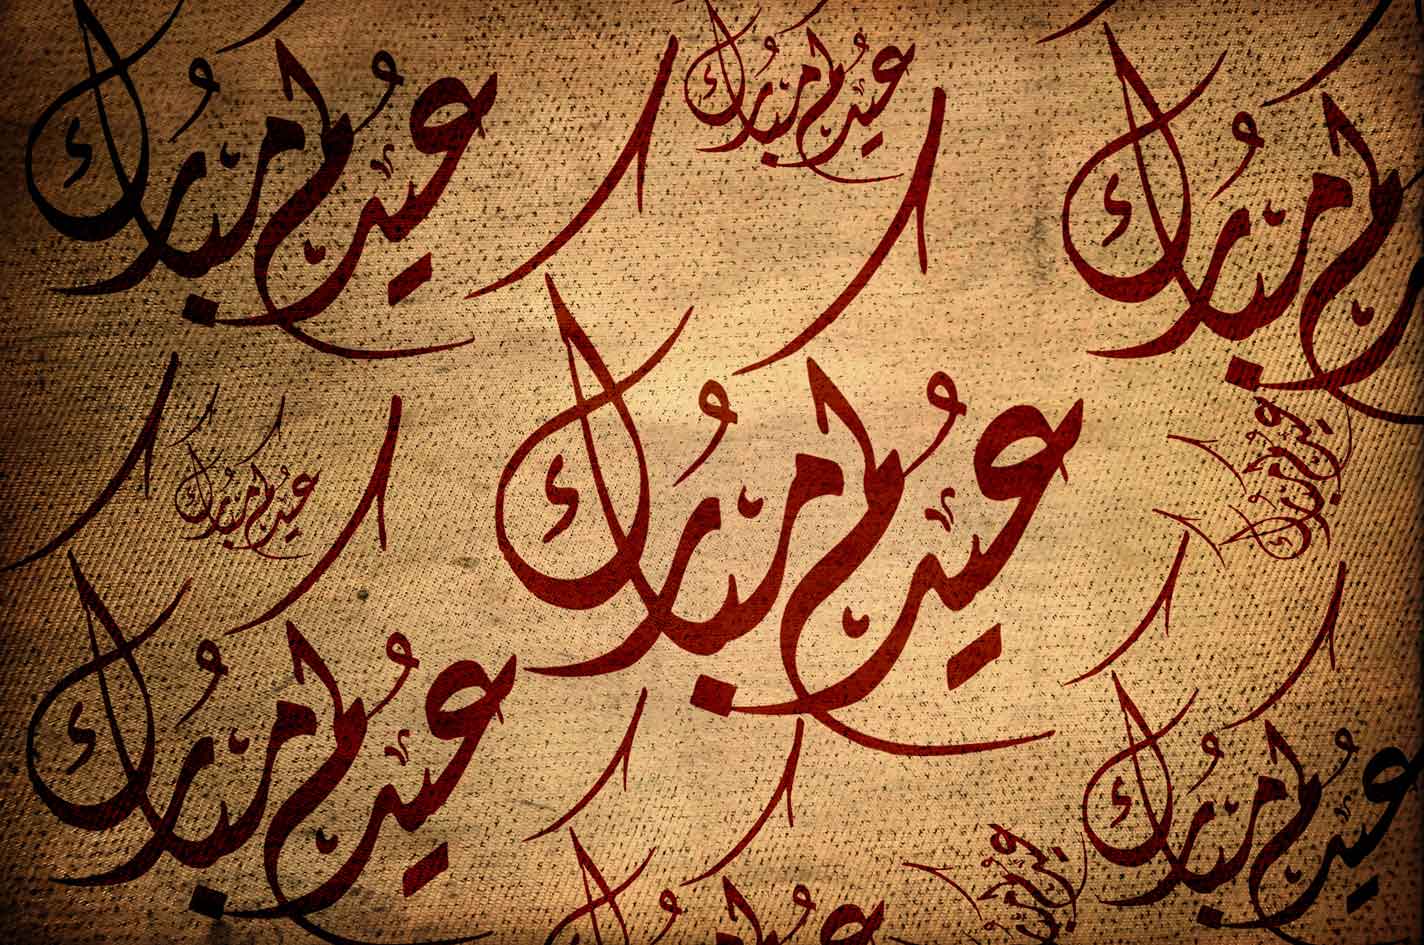 عيد مبارك
عيد مبارك
مبارك
عيد مبارك
عيد مبارك
عيد مبارك
عيد مبارك
عيد مبارك